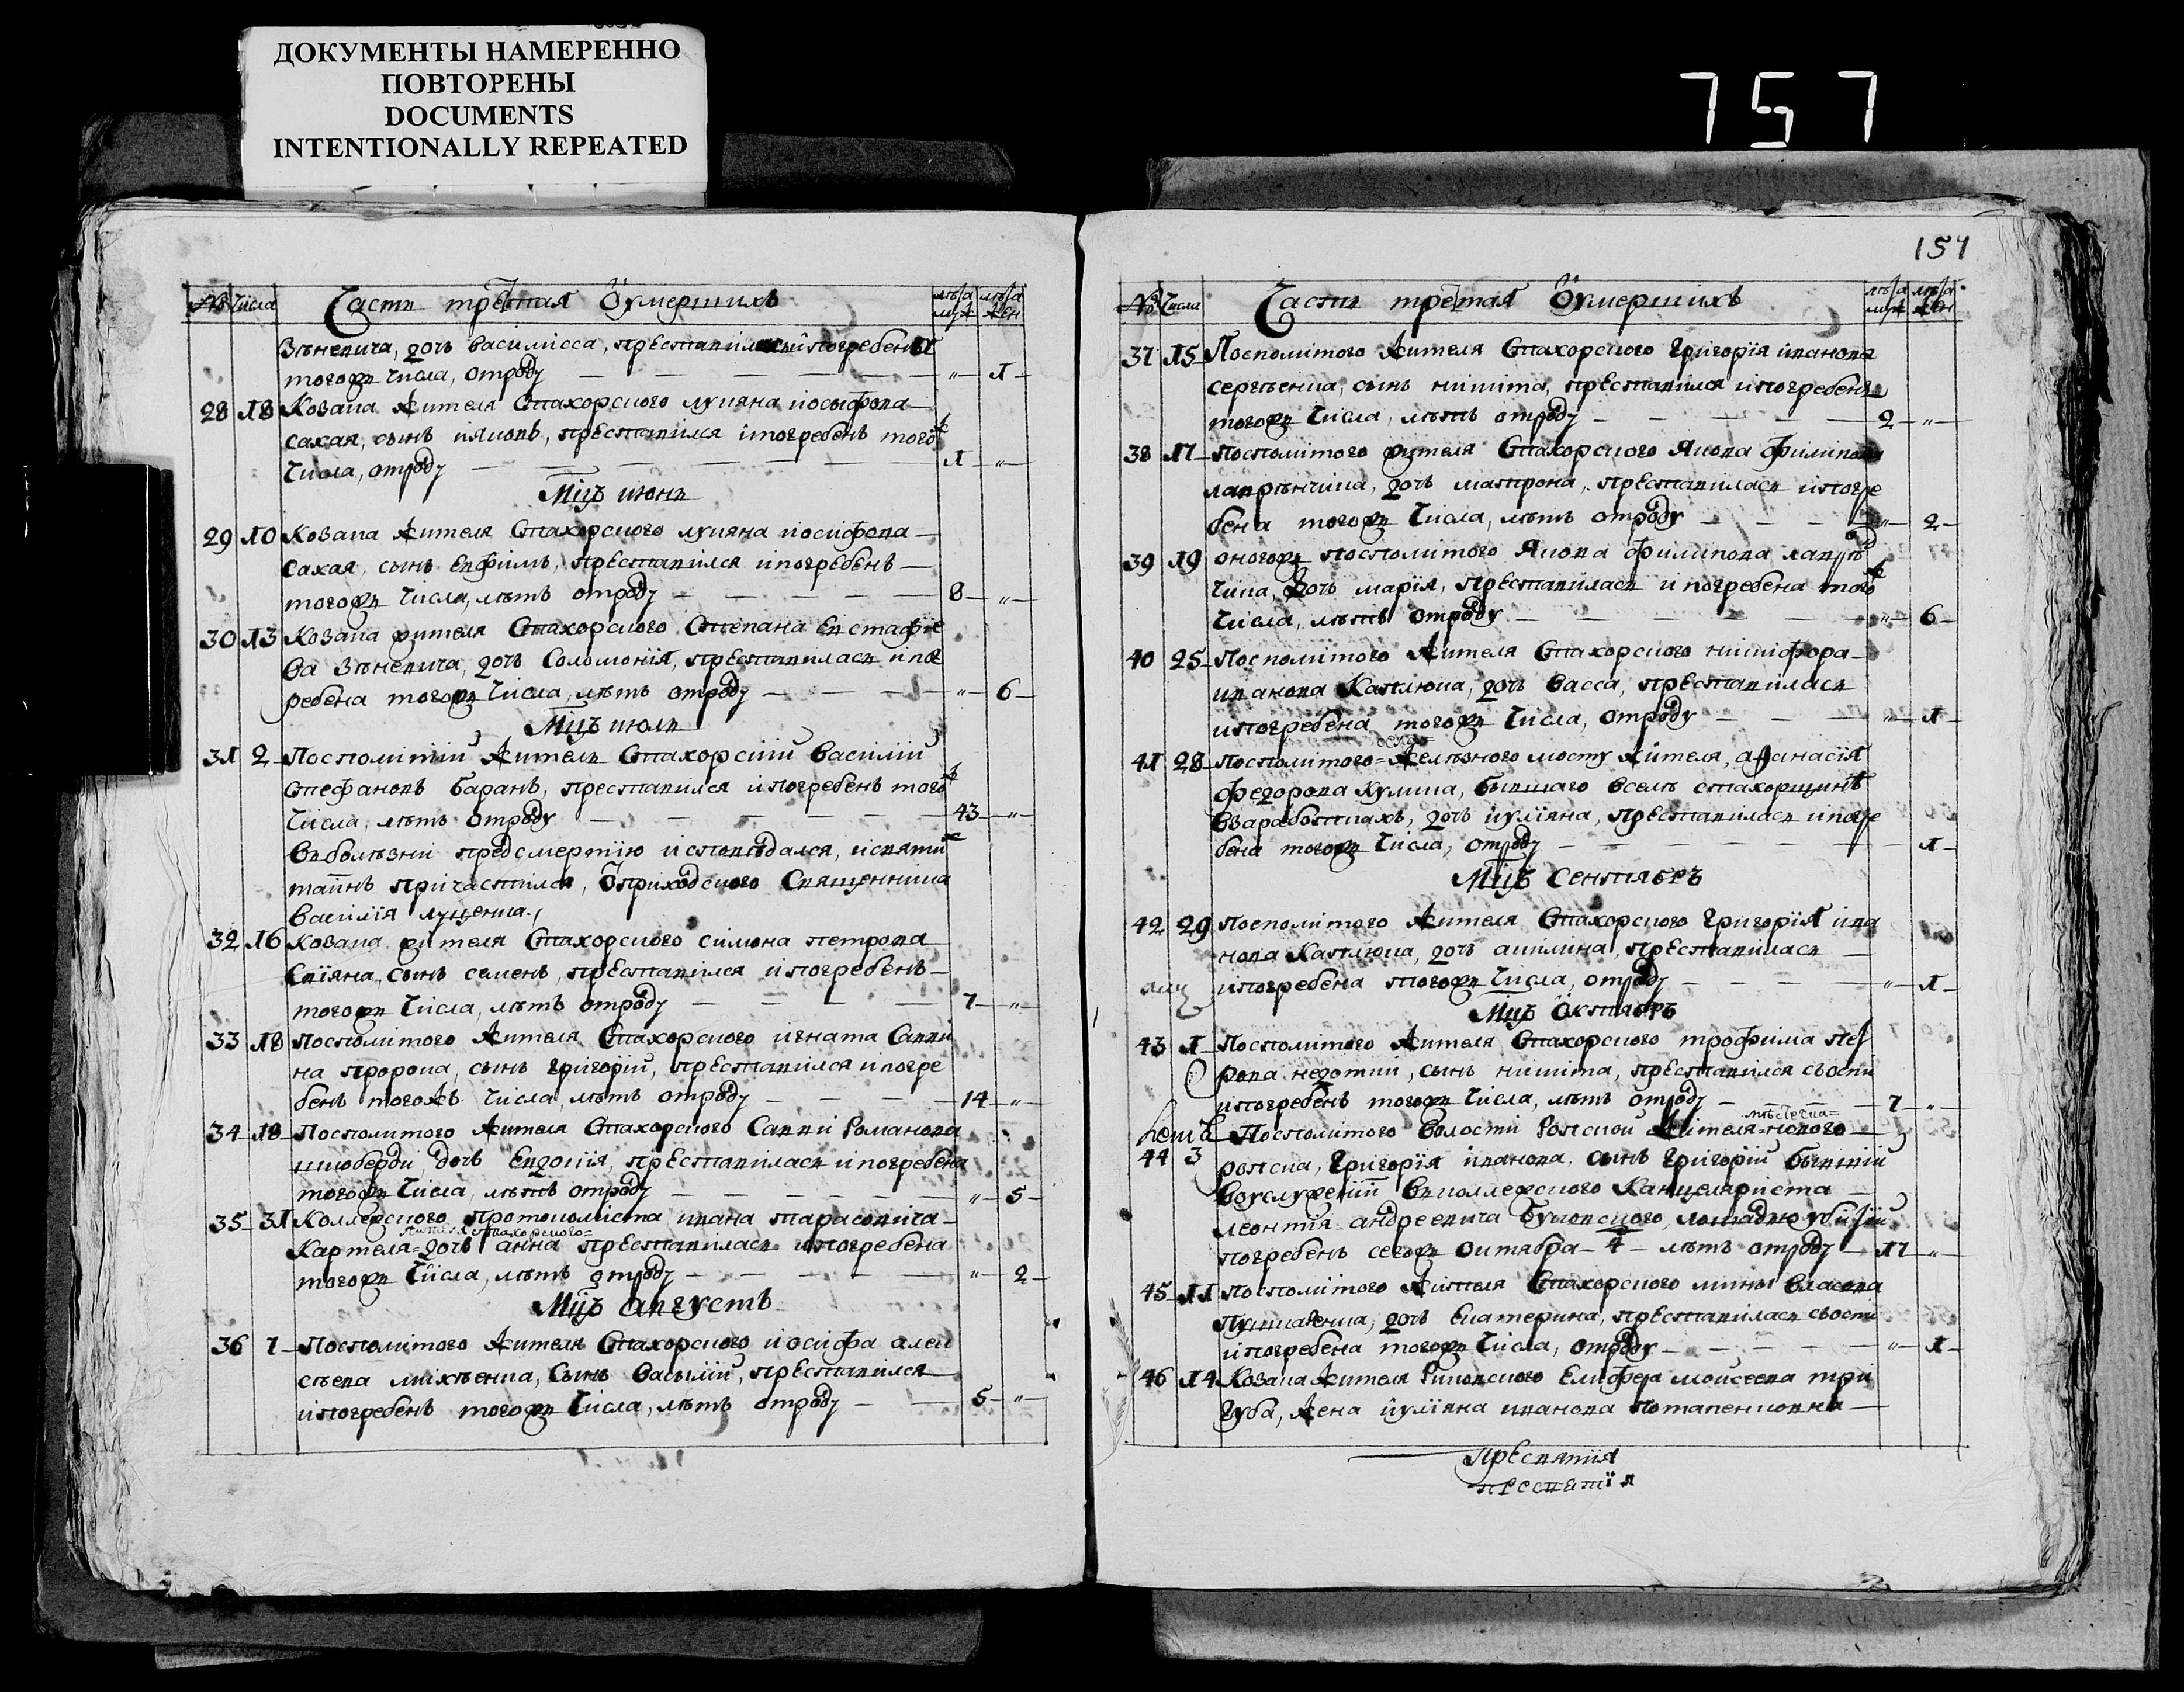 ДОКУМЕНТЫ НАМЕРЕННО
ПОВТОРЕНЫ
DOCUMENTS
INTENTIONALLY REPEATED
757
№ Числа Часть третая Ѡумершихъ лѣта муж лѣта жен
Зѣневича, дочь василисса, преставилась ипогребена
тогожъ числа, отроду — „ — 1 —
28 18 Козака жителя Стахорского лукяна иосифова
сахая, сынъ ияковъ, преставился ипогребенъ того ж
числа, отроду — 1 — „
Мцъ июнь
29 10 Козака жителя Стахорского лукяна иосифова
сахая, сынъ ефимъ, преставился ипогребенъ
тогожъ числа, лѣтъ отроду — 8 — „
30 13 Козака жителя Стахорского Степана Евстафіе
ва Зѣневича, дочь Соломонія, преставилась ипог
ребена тогожъ числа, лѣтъ отроду — „ — 6 —
Мцъ июль
31 2 Посполитій житель Стахорскій василій
стефановъ баранъ, преставился ипогребенъ того ж
числа, лѣтъ отроду — 43 — „
вболѣзни предсмертію исповѣдался, исвяти х
таинъ причастился, ѿприходского Священника
василія луценка.
32 16 Козака жителя Стахорского симона петрова
сынъ семенъ, преставился ипогребенъ
тогожъ числа, лѣтъ отроду — 7 — „
33 18 Посполитого жителя Стахорского игната Савви
на пророка, сынъ григорій, преставился ипогре
бенъ тогожъ числа, лѣтъ отроду — 14 — „
34 18 Посполитого жителя Стахорского Савви Романова
шкоберди, дочь Евдокія, преставилась ипогребена
тогожъ числа, лѣтъ отроду — „ — 5 —
35 31 Коллежского протоколиста ивана тарасовича
жителя Стахорского=
Картеля= дочь анна преставилась ипогребена
тогожъ числа, лѣтъ отроду — „ — 2 —
Мцъ августъ
36 7 Посполитого жителя Стахорского иосифа алек
сѣева михѣенка, Сынъ василій, преставился
ипогребенъ тогожъ числа, лѣтъ отроду — 5 — „
№ Числа Часть третая Ѡумершихъ лѣта муж лѣта жен
37 15 Посполитого жителя Стахорского григорія иванова
сергѣенка, сынъ никита, преставился ипогребенъ
тогожъ числа, лѣтъ отроду — 2 — „
38 17 Посполитого жителя Стахорского якова филипова
лаврѣнчика, дочь матрона, преставилась ипогре
бена тогожъ числа, лѣтъ отроду — „ — 2 —
39 19 оногожъ посполитого якова филипова лаврѣн
чика, дочь марія, преставилась ипогребена того ж
числа, лѣтъ отроду — „ — 6 —
40 25 Посполитого жителя Стахорского никифора
иванова Каплюка, дочь васса, преставилась
ипогребена тогожъ числа, отроду — „ — 1
41 28 Посполитого= желѣзного мосту жителя, афанасія
федорова кулика, бывшаго вселѣ стахорщинѣ
взаработкахъ, дочь иуліяна, преставилась ипогре
бена тогожъ числа, отроду — 1 —
Мцъ Сентябръ
42 29 Посполитого жителя Стахорского григорія ива
нова Каплюка, дочь акилина, преставилась
ипогребена тогожъ числа, отроду — „ — 1 —
Мцъ Октябръ
43 1 Посполитого жителя Стахорского трофима пет
рова сынъ никита, преставился
ипогребенъ тогожъ числа, лѣтъ отроду — 7 — „
мѣстечка=
Посполитого волости Ропской жителя нового
44 3 ропска, григорія иванова сынъ григорій бывшій
вуслуженіи коллежского Канцеляриста
леонтія андреевича лошадью убитій
погребенъ сегожъ октября 4 — лѣтъ отроду — 17 — „
45 11 посполитого жителя Стахорского мины власова
дочь Екатерина, преставилась
ипогребена тогожъ числа, отроду — „ — 1 —
46 14 Козака жителя Елифера моисеева три
губа, жена иуліяна иванова потапенковна
пресвятія
пресвятія